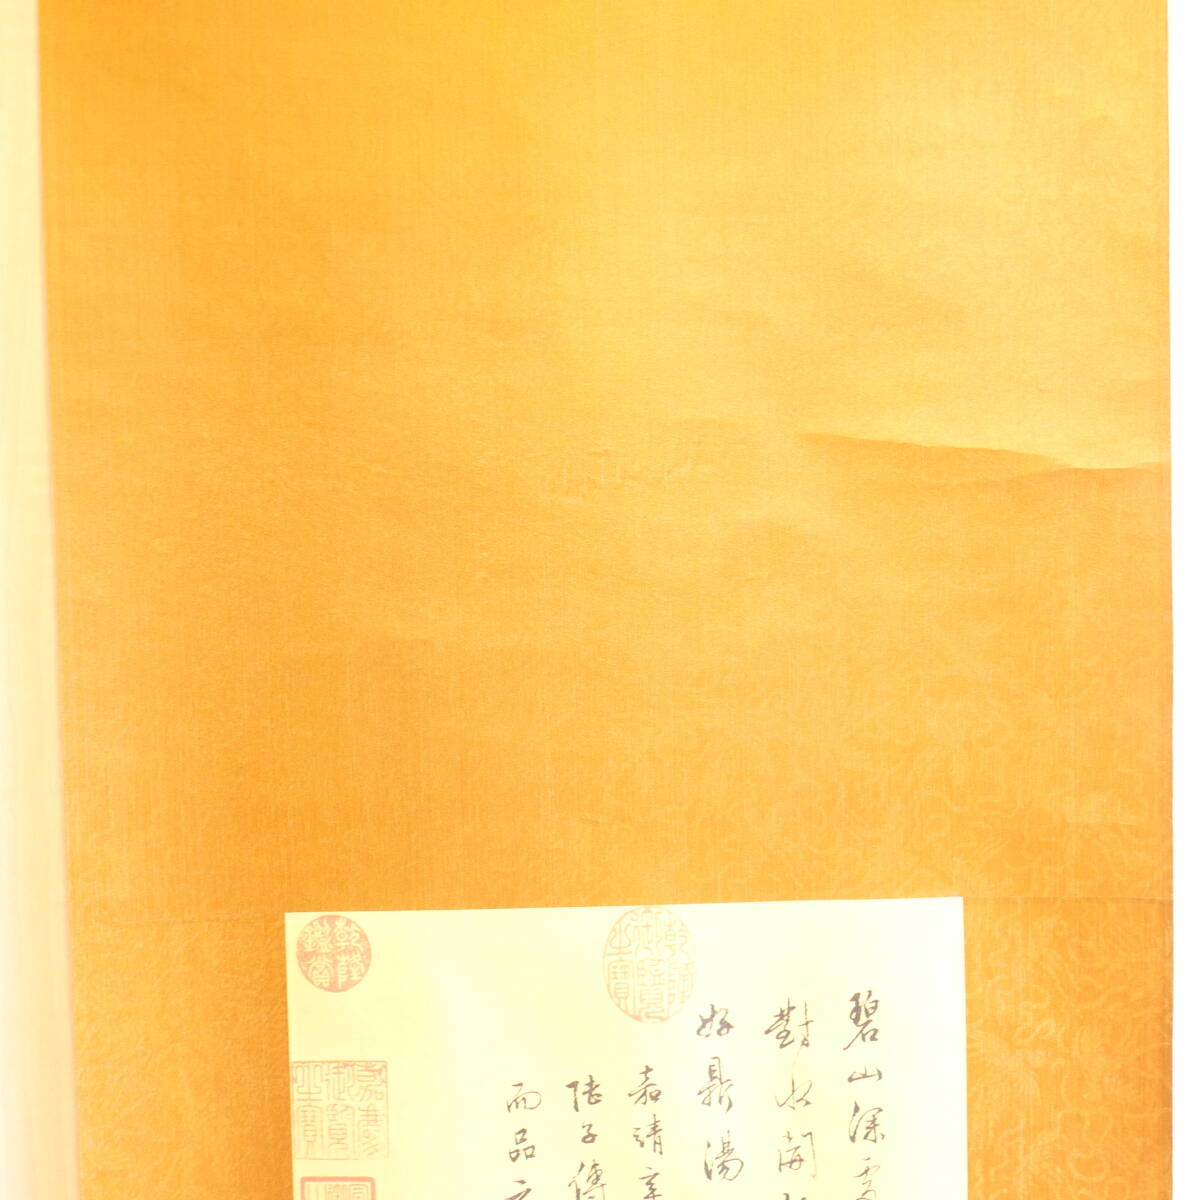 碧山深處
對水開
好鼎湯
嘉靖辛
陸子傳
而品之
乾隆御覽之寶
乾隆鑑賞
嘉慶御覽之寶